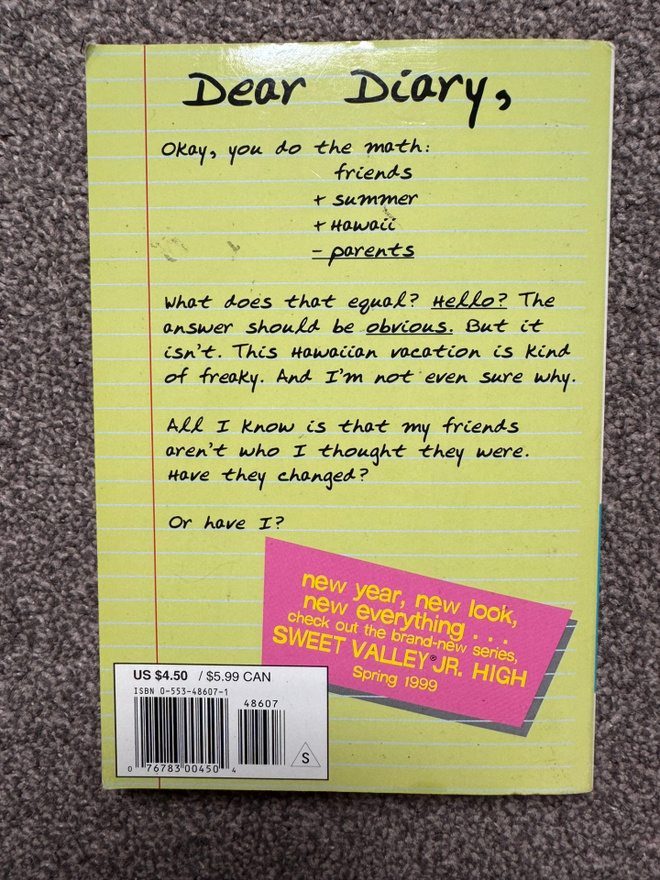 Dear Diary,
Okay, you do the math:
friends
+ summer
+ Hawaii
- parents
What does that equal? Hello? The
answer should be obvious. But it
isn't. This Hawaiian vacation is kind
of freaky. And I'm not even sure why.
All I know is that my friends
aren't who I thought they were.
Have they changed?
Or have I?
new year, new look,
new everything . . .
check out the brand-new series,
SWEET VALLEY® JR. HIGH
Spring 1999
US $4.50 / $5.99 CAN
ISBN 0-553-48607-1
48607
0 76783 00450 4
S